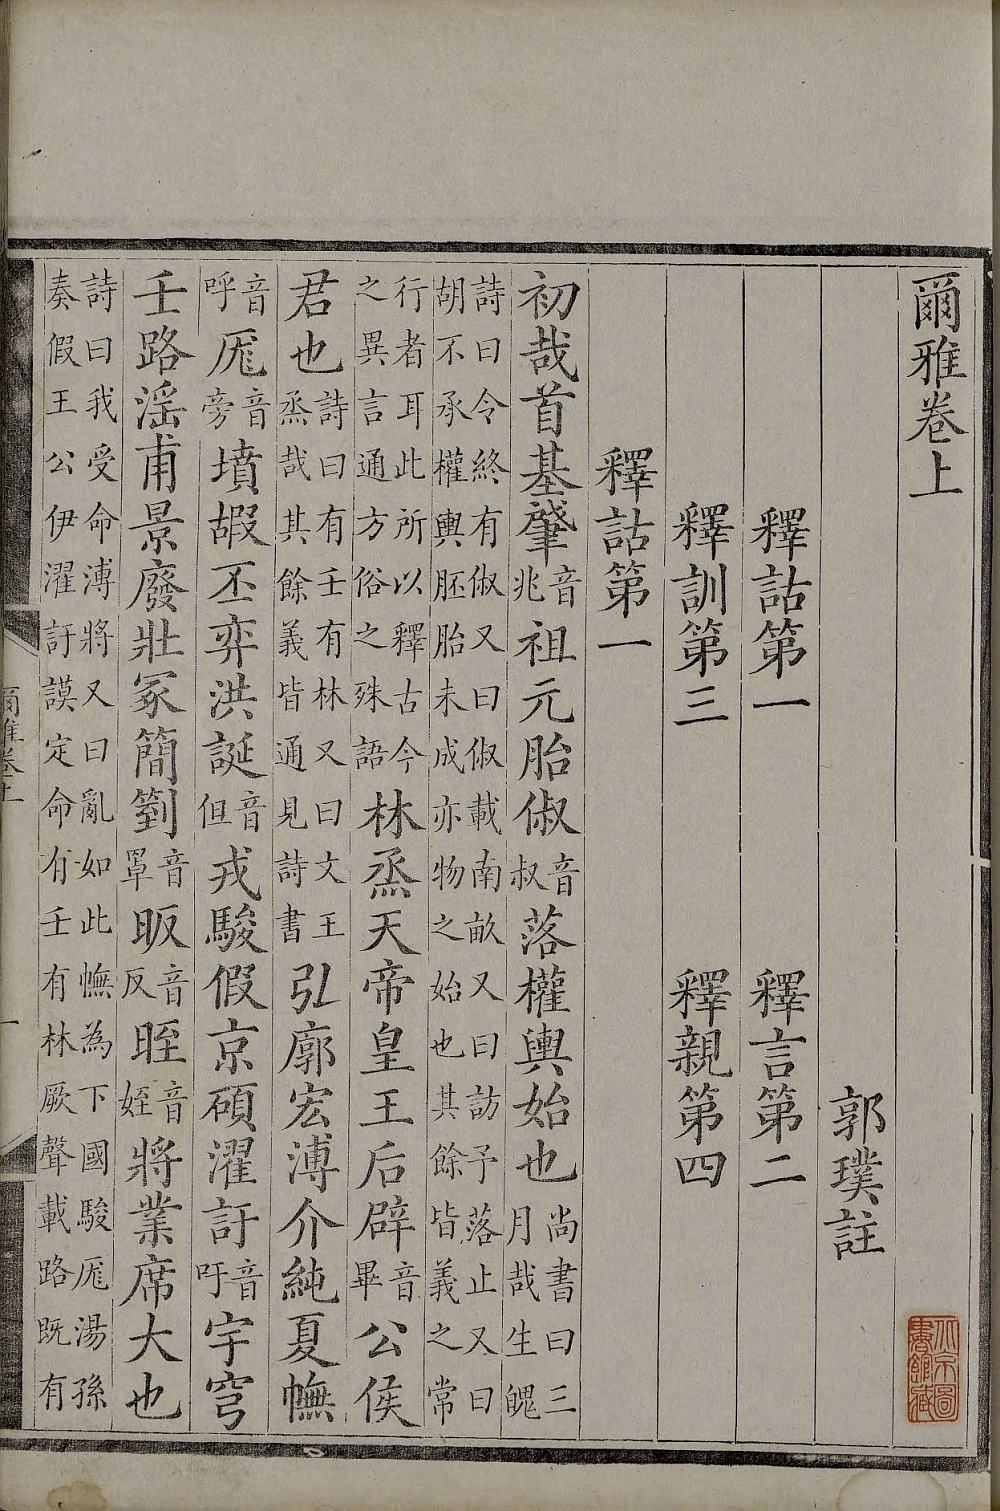 爾雅卷上
郭璞註
釋詁第一 釋言第二
釋訓第三 釋親第四
釋詁第一
初哉首基肇音兆祖元胎俶音叔落權輿始也尚書曰三月哉生魄
詩曰令終有俶又曰俶載南畝又曰訪予落止又曰
胡不承權輿胚胎未成亦物之始也其餘皆義之常
行者耳此所以釋古今之異言通方俗之殊語林烝天帝皇王后辟音畢公侯
君也詩曰有壬有林又曰文王烝哉其餘義皆通見詩書弘廓宏溥介純夏幠
音呼厖音旁墳嘏丕弈洪誕音但戎駿假京碩濯訏音吁宇穹
壬路淫甫景廢壯冢簡箌音罩昄音反晊音姪將業席大也
詩曰我受命溥將又曰亂如此幠為下國駿厖湯孫
奏假王公伊濯訏謨定命有壬有林厥聲載路既有
爾雅卷上
一
北京圖書館藏